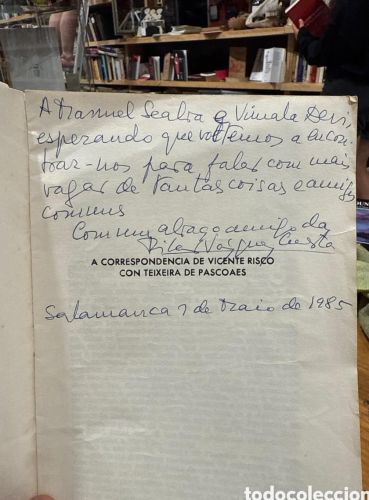 A Manuel Sealtra e Vimala Devi,
esperando que voltemos a encon-
trar-nos para falar com mais
vagar de tantas coisas e amigos
comuns
Com um abraço amigo da
Pilar Vázquez Cuesta
A CORRESPONDENCIA DE VICENTE RISCO
CON TEIXEIRA DE PASCOAES
Salamanca 7 de Maio de 1985
todocoleccion